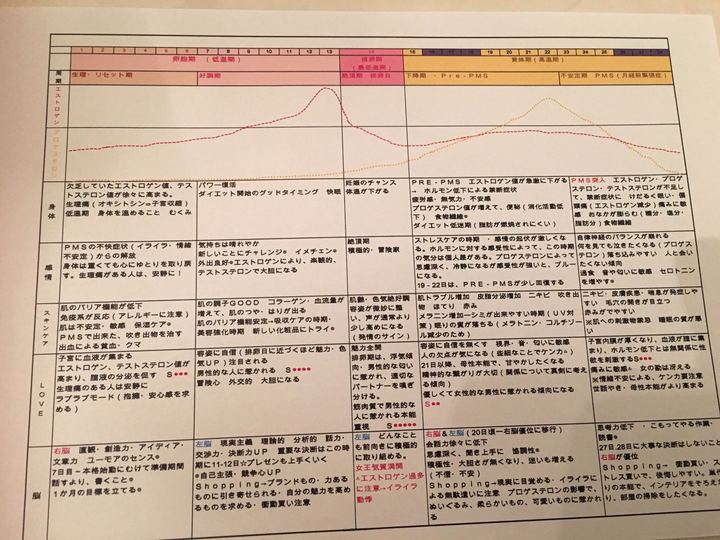 1 2 3 4 5 6 7 8 9 10 11 12 13 14
卵胞期 (低温期)
排卵期
(最低温期)
黄体期(高温期)
周期
生理・リセット期
好調期
絶頂期 排卵日
下降期 ・Pre-PMS
不安定期 PMS(月経前緊張症)
エストロゲン
プロゲストロン
身体
欠乏していたエストロゲン値、テス
トステロン値が徐々に高まる。
生理痛(オキシトシン=子宮収縮)
低温期 身体を温めること むくみ
パワー復活
ダイエット開始のグッドタイミング 快眠
妊娠のチャンス
体温が下がる
PRE-PMS エストロゲン値が急激に下がる
→ ホルモン低下による禁断症状
疲労感・無気力・不安
プロゲステロン値が増えて、便秘(消化活動低
下) 食物繊維
ダイエット低迷期(脂肪が燃焼されにくい)
PMS突入 エストロゲン・プロゲ
ステロン・テストステロンが不足し
て、禁断症状に けだるく眠い・偏
頭痛(エストロゲン減少)痛みに敏
感 おなかが膨らむ(糖分・塩分・
脂肪分)食物繊維
感情
PMSの不快症状(イライラ・情緒
不安定)からの解放
身体は重くても心にゆとりを取り戻
す。生理痛がある人は、安静に!
気持ちは晴れやか
新しいことにチャレンジ イメチェン
外出良好 エストロゲンにより、楽観的、
テストステロンで大胆になる
絶頂期
積極的・冒険家
ストレスケアの時期 ・感情の起伏が激しくな
る。ホルモンに対する感受性によって、この時期
の気分は個人差がある。プロゲステロンによって
思慮深く、冷静になるが感受性が強いと、ブルー
になる。
19-22日は、PRE-PMSが少し回復する
自律神経のバランスが崩れる
何を見ても泣きたくなる(プロゲス
テロン)落ち込みやすい 人と会い
たくない傾向
過食 音や匂いに敏感 セロトニン
を増やす
スキンケア
肌のバリア機能が低下
免疫系が反応(アレルギーに注意)
肌は不安定、敏感 保湿ケア
PMSで出来た、吹き出物を治す
出血による貧血・クマ
肌の調子GOOD コラーゲン・血流量が
増えて、肌のつや・はりが出る
肌のバリア機能安定→吸収ケアの時期・
美容強化時期 新しい化粧品にトライ
肌艶・色気絶好調
容姿が微妙に整
い、声が通常より
少し高めになる
(発情のサイン)
肌トラブル増加 皮脂分泌増加 ニキビ 吹き出
物 ほてり 赤み
メラニン増加→シミが出来やすい時期(UV対
策)眠りの質が落ちる(メラトニン・コルチゾー
ル減少のため)
ニキビ・皮膚疾患・喘息が発症しや
すい 毛穴の開きが目立つ
赤みがでやすい
※肌への刺激物禁忌 睡眠の質が悪
い
LOVE
子宮に血液が集まる
エストロゲン、テストステロン値が
高まり、膣液の分泌を促す S●●●
生理痛のある人は安静に
ラブラブモード(抱擁・安心感を求
める)
容姿に自信(排卵日に近づくほど魅力・色
気UP)注目される
男性的な人に惹かれる S●●●●
冒険心 外交的 大胆になる
魅力全開
排卵期は、浮気傾
向・男性的な匂い
に惹かれ、適切な
パートナーを嗅ぎ
分ける。
筋肉質で男性的な
人に惹かれる本能
重視 S●●●●●
容姿に自信を無くす 視界・音・匂いに敏感
人の欠点が気になる(些細なことでケンカ)
21日以降、母性本能で、甘やかしたくなる
精神的な繋がりが大切(関係について真剣に考え
る傾向)
優しくて女性的な男性に惹かれる傾向になる
S●●
子宮内膜が厚くなり、血液が腫に集
まり、ホルモン低下とは無関係に性
欲を刺激する S●●●
痛みに敏感 女の勘は冴える
※情緒不安による、ケンカ要注意
世話やき・母性本能がより高まる
脳
右脳 直観・創造力・アイディア・
文章力 ユーモアのセンス
7日目→本格始動にむけて準備期間
話すより、書くこと
1か月の目標を立てる
左脳 現実主義 理論的 分析的 話力・
交渉力、決断力UP 重要な決断はこの時
期に11-12日☆プレゼンも上手くいく
自己主張・競争心UP
Shopping→ブランドもの・力ある
ものに引き寄せられる・自分の魅力を高め
るものを求める・衝動買い注意
左脳 どんなこと
も前向きに積極的
に取り組める。
女王気質満開
エストロゲン過多
に注意→イライラ
動悸
右脳&左脳(20日頃→右脳優位に移行)
会話力徐々に低下
思慮深く、聞き上手に 協調性
積極性・大胆さが無くなり、迷いも増える
(不信・不安)
Shopping→現実に目覚める・イライラによ
る無駄遣いに注意 プロゲステロンの影響で、
ぬいぐるみ、柔らかいもの、可愛いものに惹かれ
る
思考力低下 ・こもってやる作業・
読書
27日.28日に大事な決断はしないこ
右脳が優位
Shopping→ 衝動買い・ス
トレス買いで、後悔しやすい。巣作
りの本能で、インテリアをそろえ
り、部屋の掃除をしたくなる。